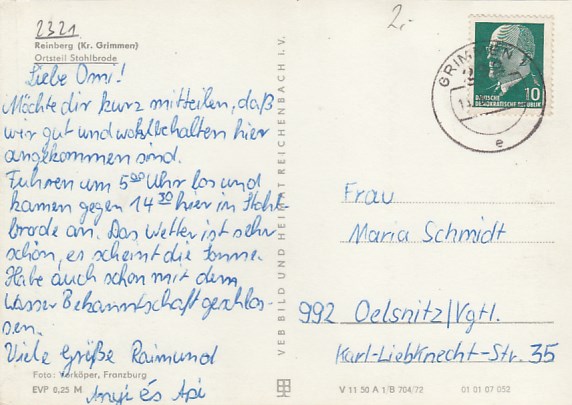 2321
2,-
Reinberg (Kr. Grimmen)
Ortsteil Stahlbrode
Liebe Omi!
Möchte dir kurz mitteilen, daß
wir gut und wohlbehalten hier
angekommen sind.
Fuhren um 5 00 Uhr los und
kamen gegen 14 30 hier in Stahl-
brode an. Das Wetter ist sehr
schön, es scheint die Sonne.
Habe auch schon mit dem
Wasser Bekanntschaft geschlos-
sen.
Viele Grüße Raimund
Anyi és Api
Foto: Verköper, Franzburg
EVP 0,25 M
VEB BILD UND HEIMAT REICHENBACH I. V.
GRIMMEN 1
e
10
DEUTSCHE
DEMOKRATISCHE REPUBLIK
Frau
Maria Schmidt
992 Oelsnitz/Vgtl.
Karl-Liebknecht-Str. 35
V 11 50 A 1/B 704/72 01 01 07 052